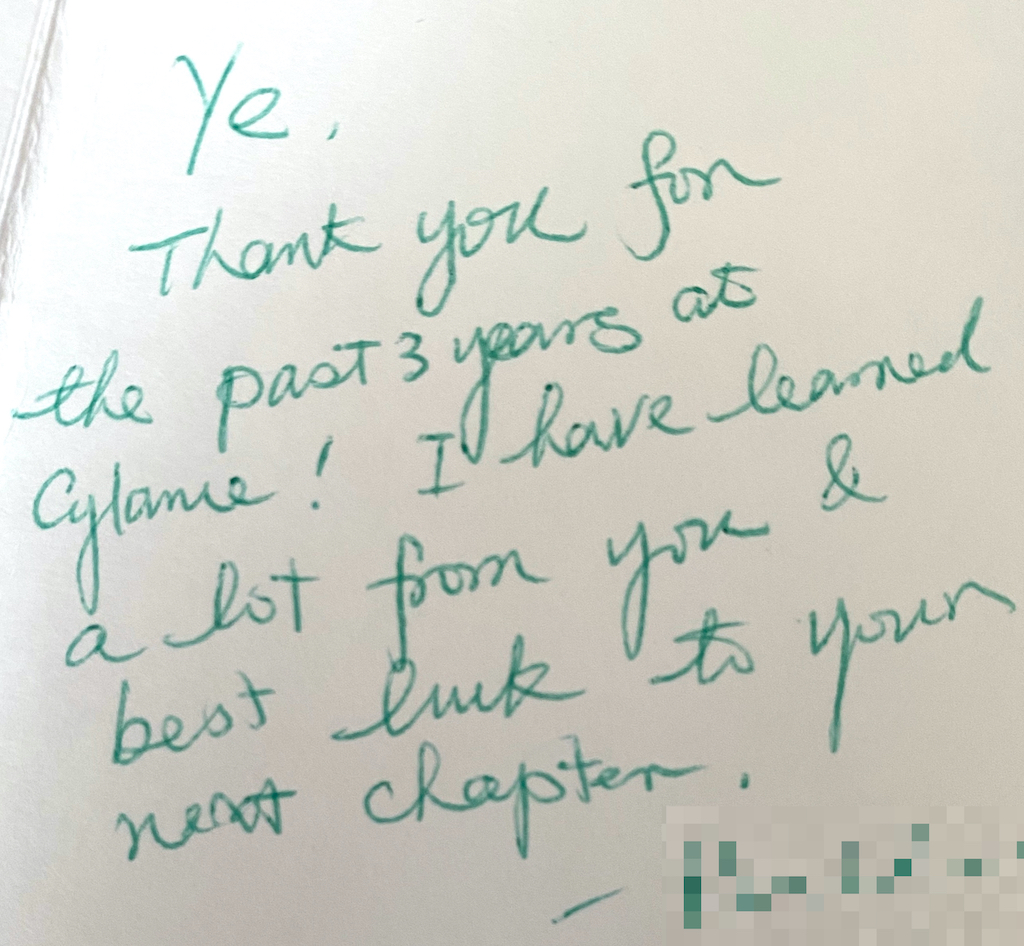 Ye,
Thank you for
the past 3 years at
Cylance! I have learned
a lot from you &
best luck to your
next chapter.
—